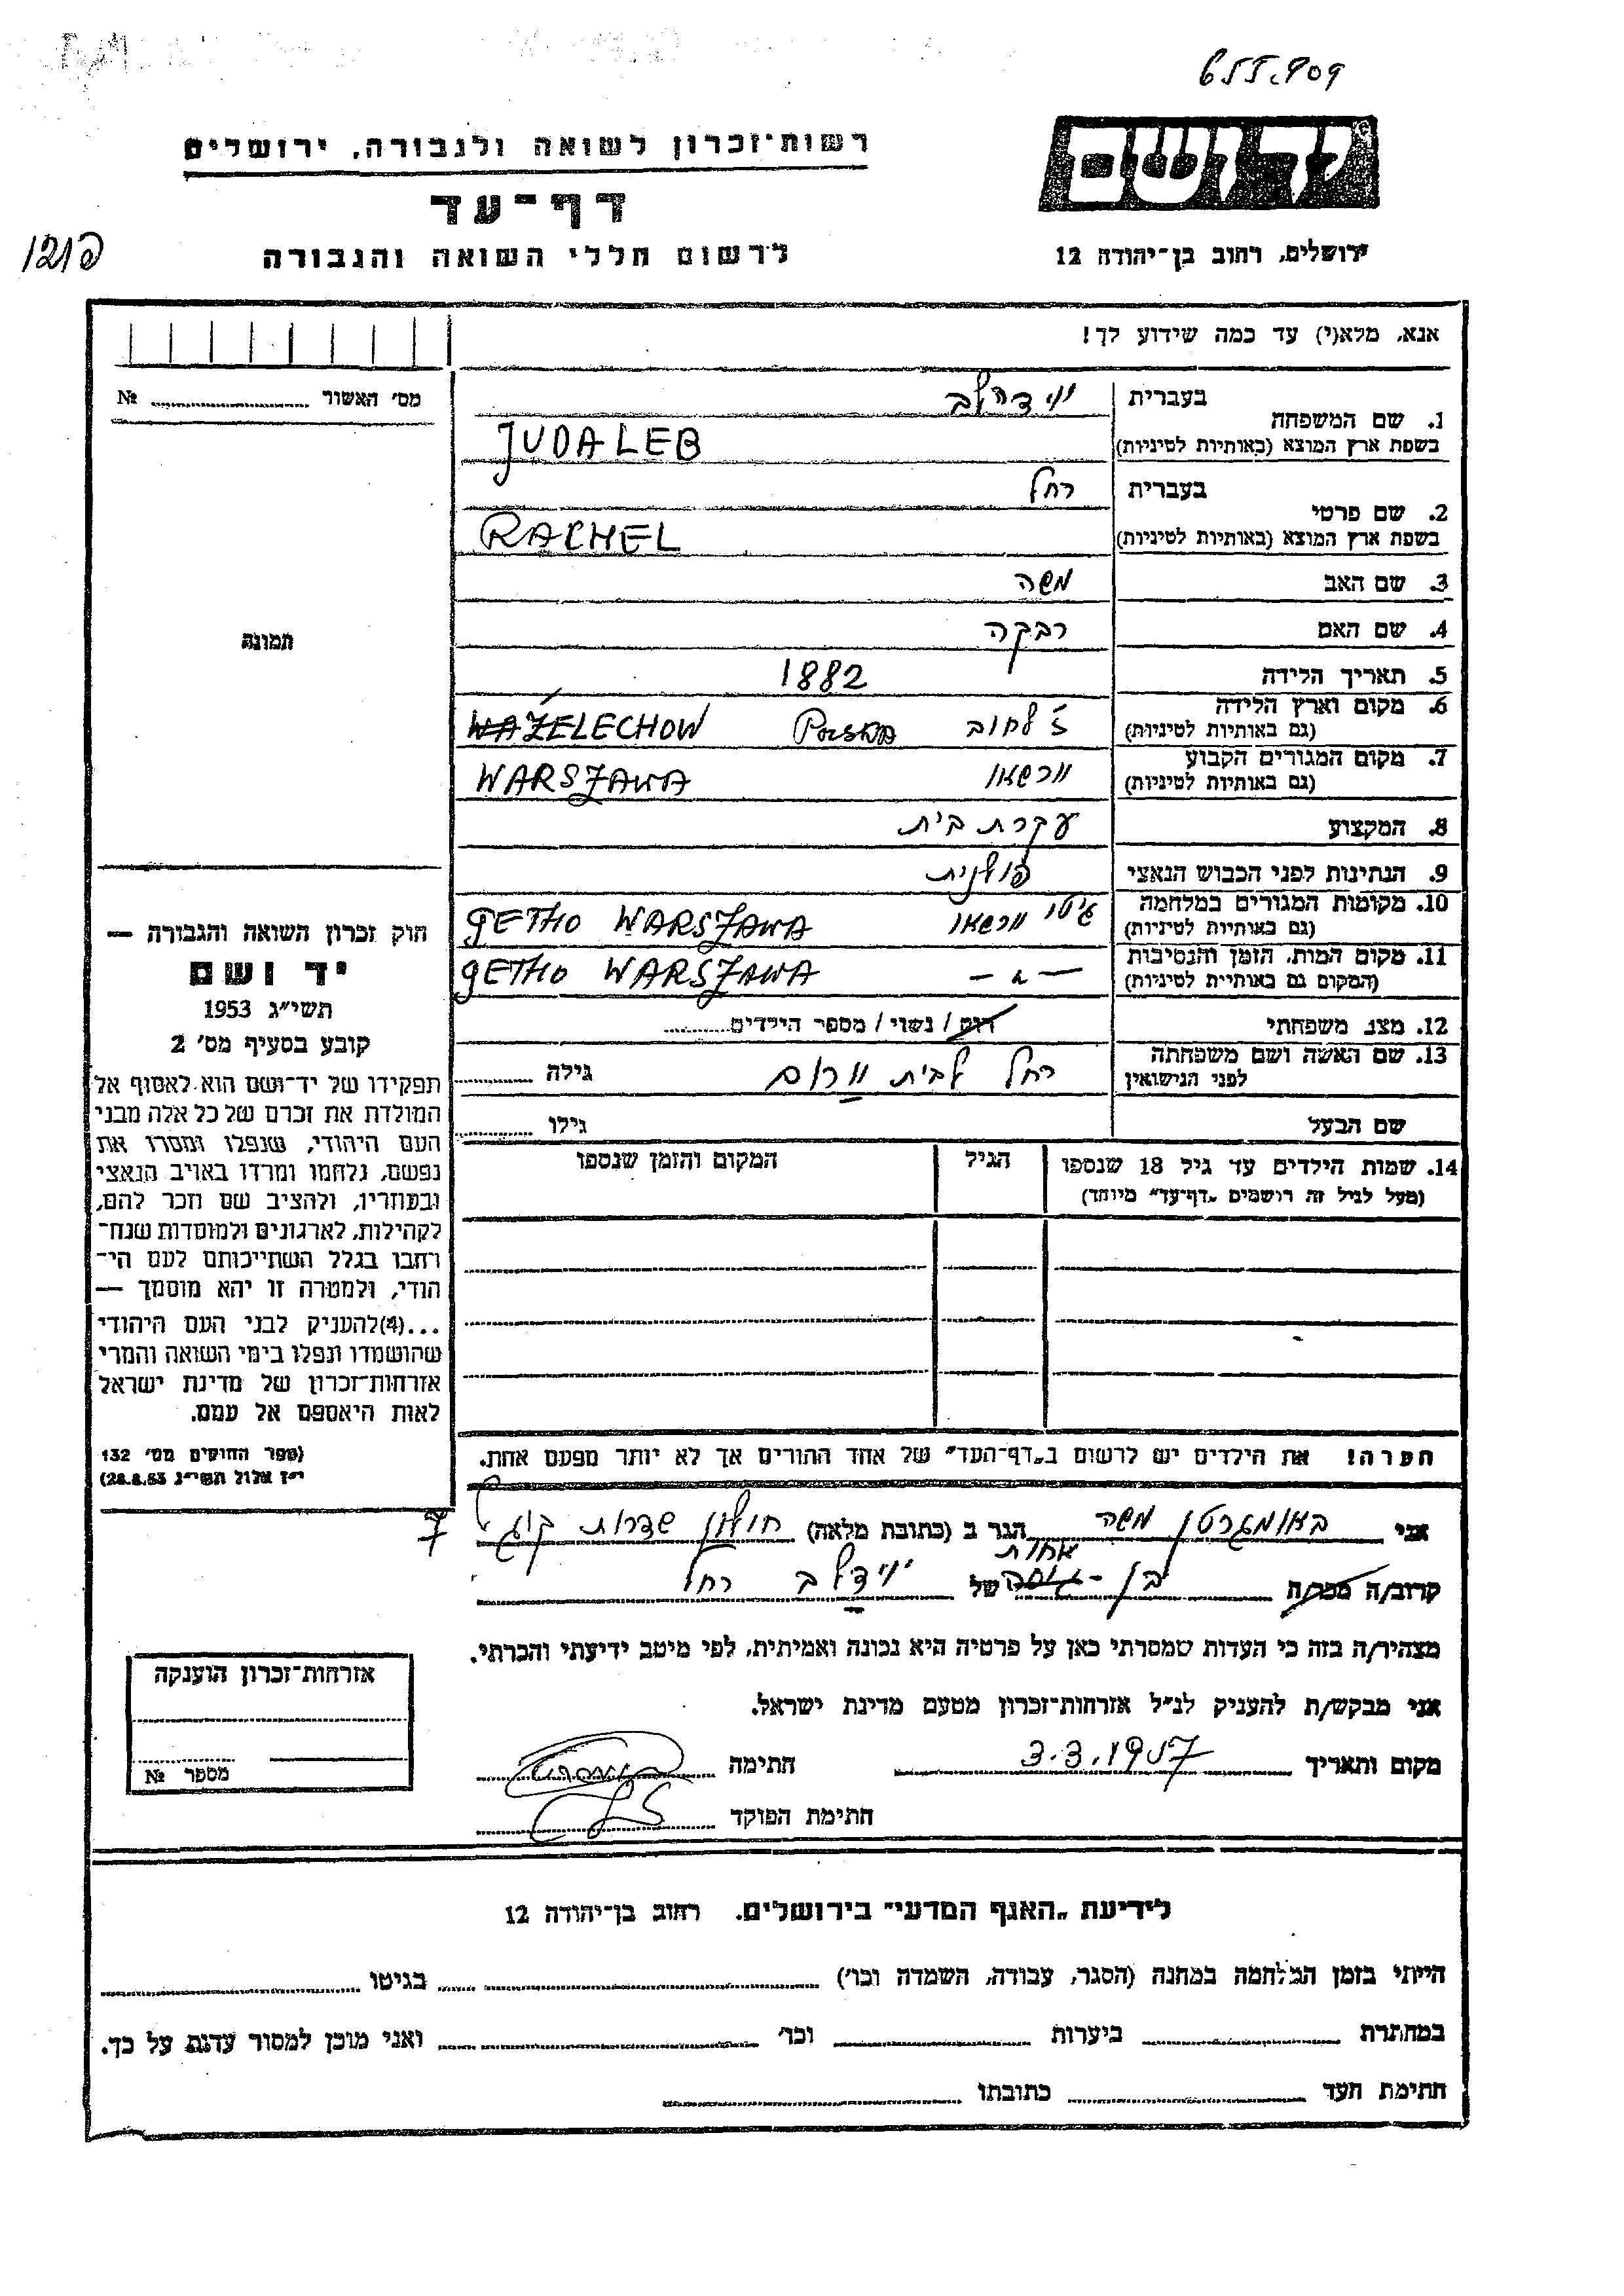 655.909
רשות־זכרון לשואה ולגבורה, ירושלים
ידושם
דף־עד
לרשום חללי השואה והגבורה
ירושלים, רחוב בן־יהודה 12
אנא, מלא(י) עד כמה שידוע לך!
מס׳ האשור № 
1. שם המשפחה בעברית
JUDALEB
בשפת ארץ המוצא (באותיות לטיניות)
בעברית רחל
2. שם פרטי
RACHEL
בשפת ארץ המוצא (באותיות לטיניות)
3. שם האב משה
4. שם האם רבקה
תמונה
5. תאריך הלידה 1882
6. מקום וארץ הלידה ז׳לחוב POLSKA ŻELECHOW
(גם באותיות לטיניות)
7. מקום המגורים הקבוע וורשאו WARSZAWA
(גם באותיות לטיניות)
8. המקצוע עקרת בית
9. הנתינות לפני הכבוש הנאצי פולנית
10. מקומות המגורים במלחמה גיטו וורשאו GETHO WARSZAWA
(גם באותיות לטיניות)
11. מקום המות, הזמן והנסיבות — " — GETHO WARSZAWA
(המקום גם באותיות לטיניות)
12. מצב משפחתי רווק / נשוי / מספר הילדים
13. שם האשה ושם משפחתה רחל לבית וורום גילה
לפני הנישואין
שם הבעל גילו
14. שמות הילדים עד גיל 18 שנספו הגיל המקום והזמן שנספו
(מעל לגיל זה רושמים „דף־עד״ מיוחד)
הערה! את הילדים יש לרשום ב„דף־העד״ של אחד ההורים אך לא יותר מפעם אחת.
חוק זכרון השואה והגבורה —
יד ושם
תשי״ג 1953
קובע בסעיף מס׳ 2
תפקידו של יד־ושם הוא לאסוף אל
המולדת את זכרם של כל אלה מבני
העם היהודי, שנפלו ומסרו את
נפשם, נלחמו ומרדו באויב הנאצי
ובעוזריו, ולהציב שם וזכר להם,
לקהילות, לארגונים ולמוסדות שנח־
רחבו בגלל השתייכותם לעם הי־
הודי, ולמטרה זו יהא מוסמך —
...(4)להעניק לבני העם היהודי
שהושמדו ונפלו בימי השואה והמרי
אזרחות־זכרון של מדינת ישראל
לאות היאספם אל עמם.
(ספר החוקים מס׳ 132
י״ז אלול תשי״ג 28.8.53)
אני באומגרטן משה הגר ב (כתובת מלאה) חולון שדרות קוגל 7
אחות
קרוב/ה מכר/ה בן־ של יודלב רחל
מצהיר/ה בזה כי העדות שמסרתי כאן על פרטיה היא נכונה ואמיתית, לפי מיטב ידיעתי והכרתי.
אני מבקש/ת להעניק לנ״ל אזרחות־זכרון מטעם מדינת ישראל.
מקום ותאריך 3.3.1957 חתימה
חתימת הפוקד
אזרחות־זכרון הוענקה
מספר №
לידיעת „האגף המדעי״ בירושלים, רחוב בן־יהודה 12
הייתי בזמן המלחמה במחנה (הסגר, עבודה, השמדה וכו׳) בגיטו
במחתרת ביערות וכו׳ ואני מוכן למסור עדות על כך.
חתימת העד כתובתו